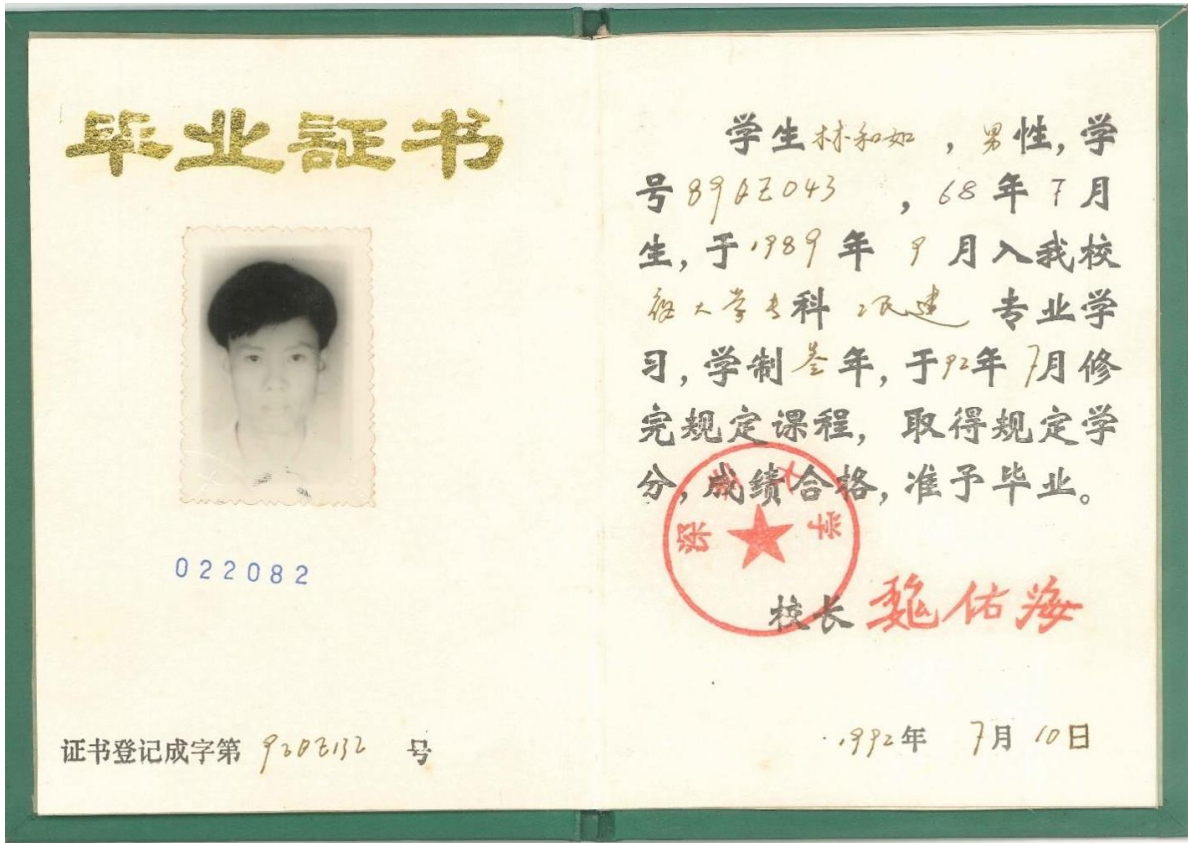 毕业証书
022082
证书登记成字第 号
学生林和如，男性，学
号 ，68年7月
生，于1989年 9月入我校
大学专科 专业学
习，学制叁年，于92年7月修
完规定课程，取得规定学
分，成绩合格，准予毕业。
深圳大学
校长 魏佑海
1992年 7月10日